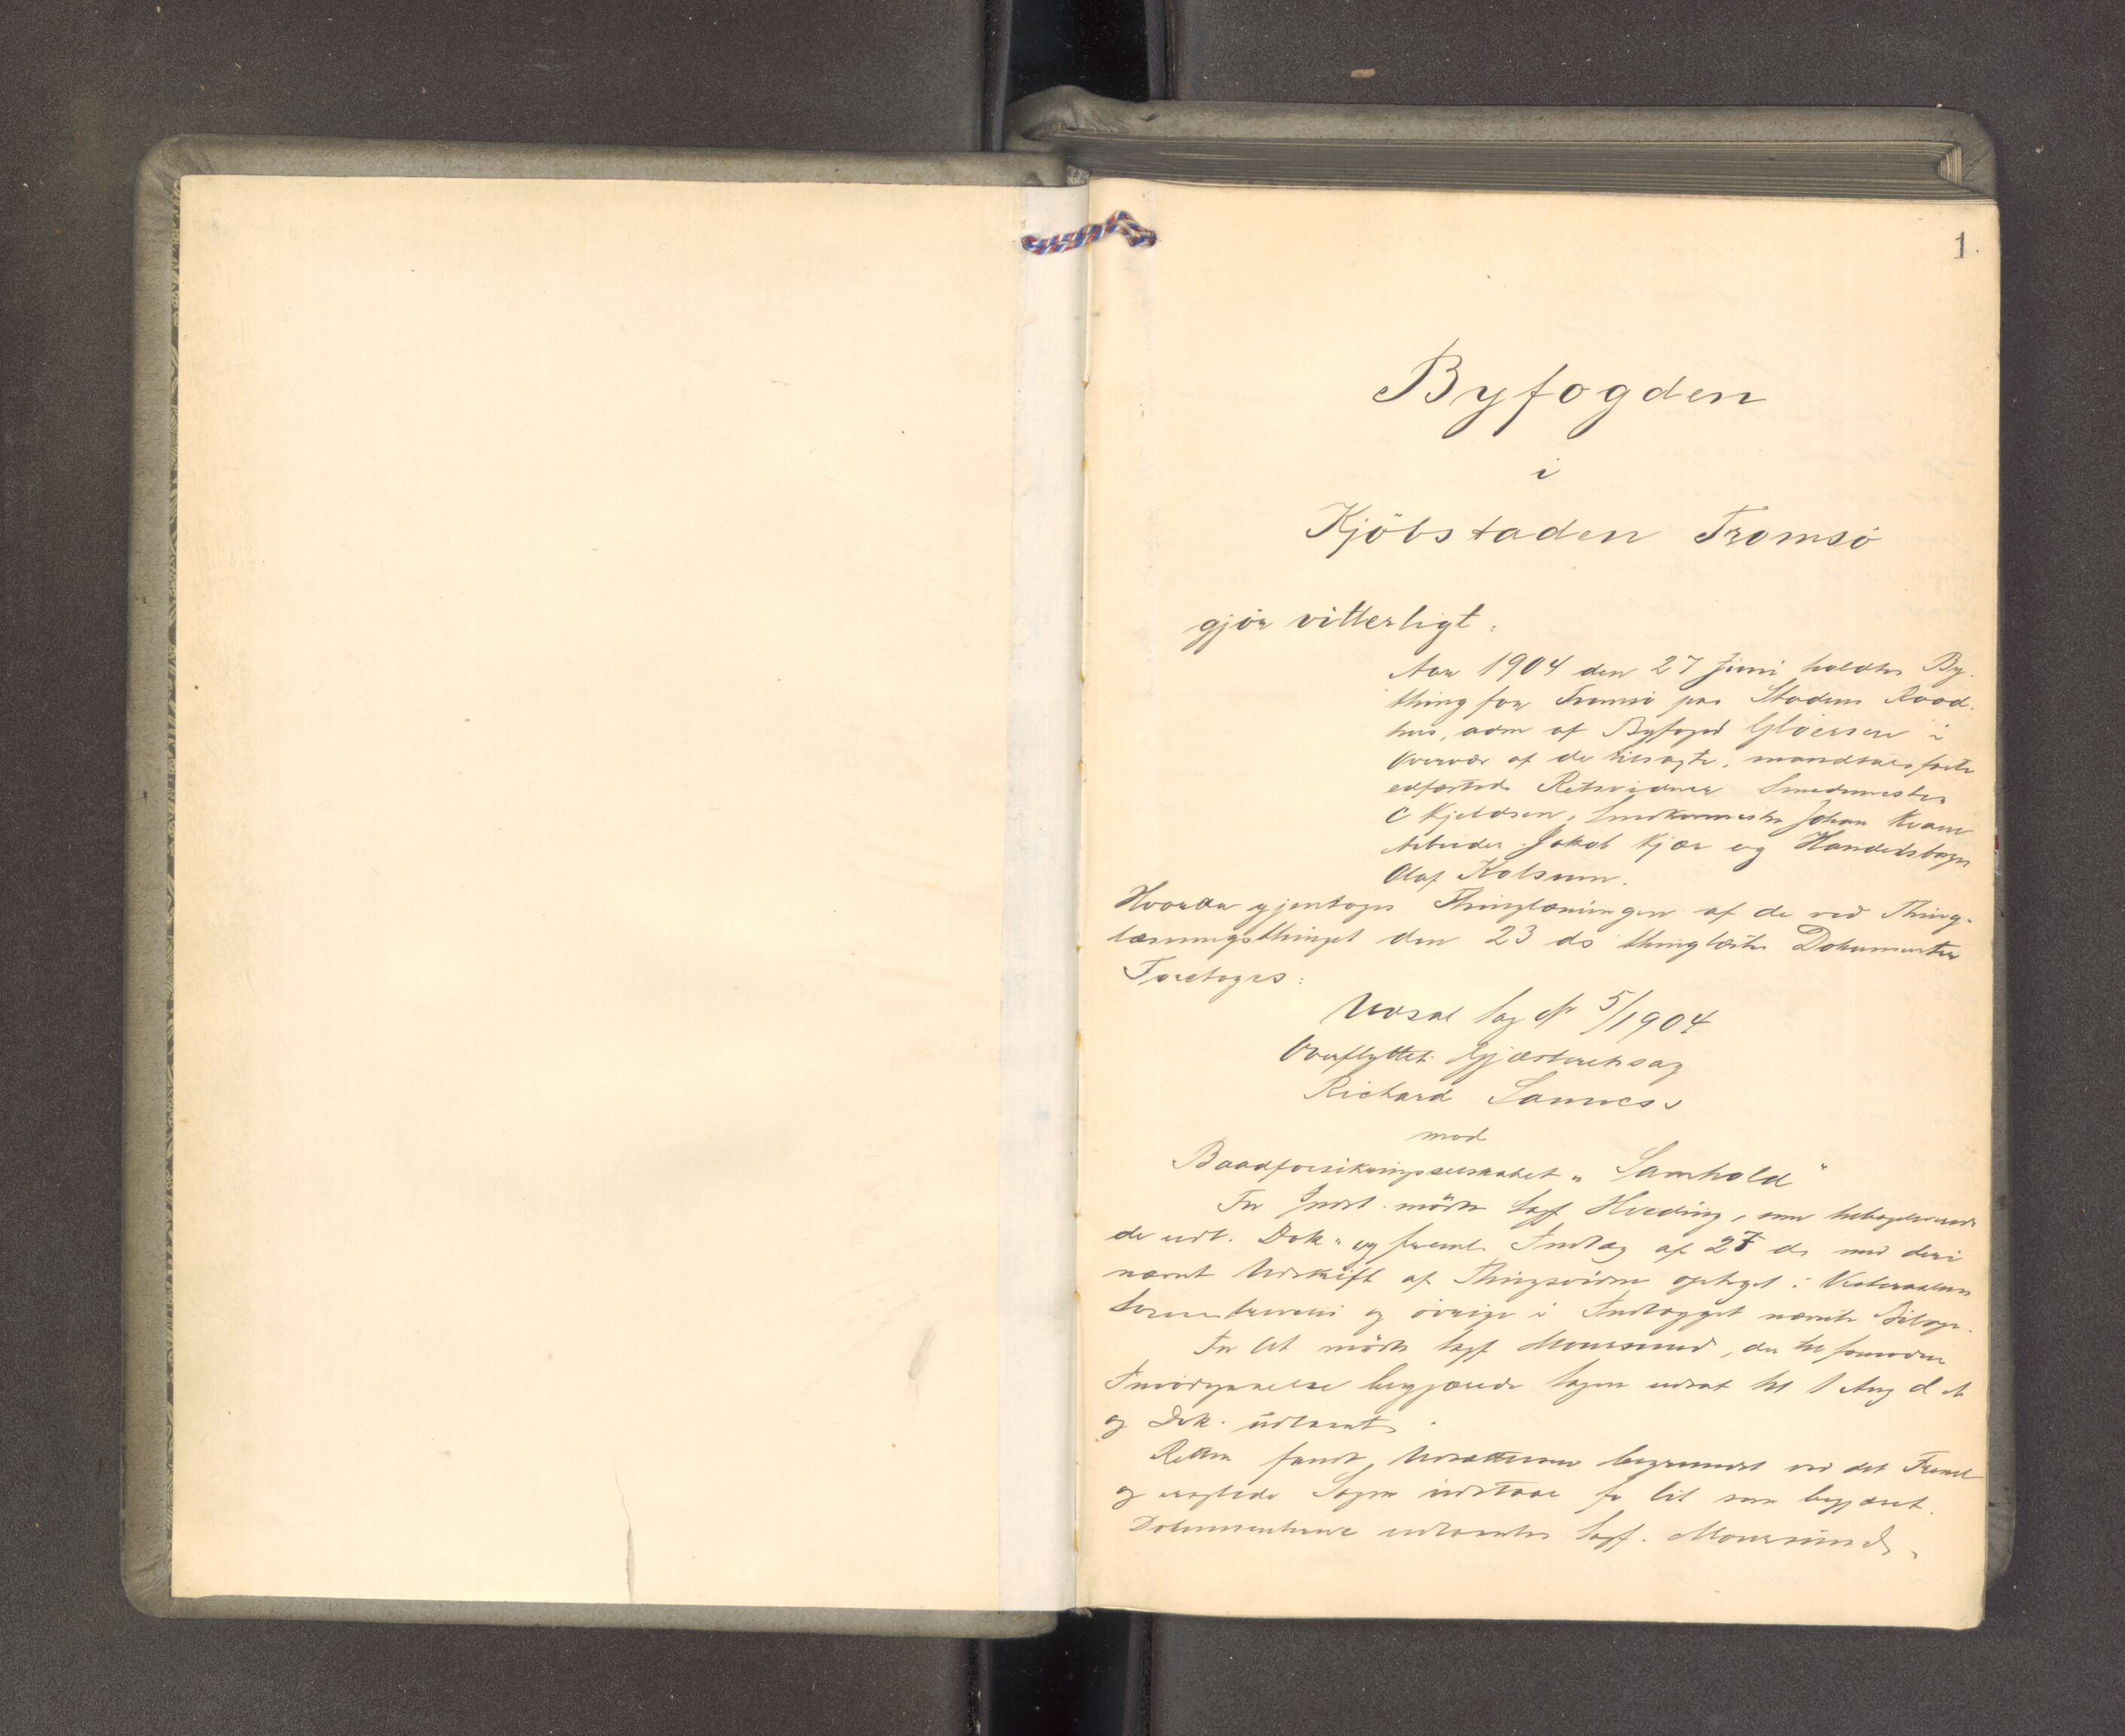 1.
Byfogden
i
Kjöbstaden Tromsö
gjör vitterligt:
Aar 1904 den 27 Juni holdtes By-
thing for Tromsö paa Stadens Raad-
hus, adm af Byfoged Gløersen i
Overvær af de tilsagte, mandtalsførte
edfæstede Retsvidner Smedmester
C Kjeldsen, Snedkermester Johan Kvam
Arbeider Jakob Kjær og Handelsborger
Olaf Kolsum.
Hvorda gjentoges Thinglæsningen af de ved Thing-
læsningsthinget den 23 ds thinglæste Dokumenter
Foretoges:
Udsat Sag No 5/1904
Overflyttet Gjæsteretssag
Richard Sannes
mod
Baadforsikringsselskabet "Samhold"
For Indst. mödte Sagf Hveding, som tilbageleverede
de udl. Dok. og freml. Indlæg af 27 ds med deri
nævnt Udskrift af Thingsvidne optaget i Vesteraalens
Sorenskriveri og övrige i Indlægget nævnte Bilage.
For Cit mödte Sagf Moursund, der til fornöden
Imödegaaelse begjærede Sagen udsat til 1 Aug d A
og Dok. udlaant.
Retten fandt Udsættelsen begrundet ved det Freml
og eragtede Sagen udstaae for Cit som begjæret.
Dokumenterne udlaantes Sagf. Moursund.